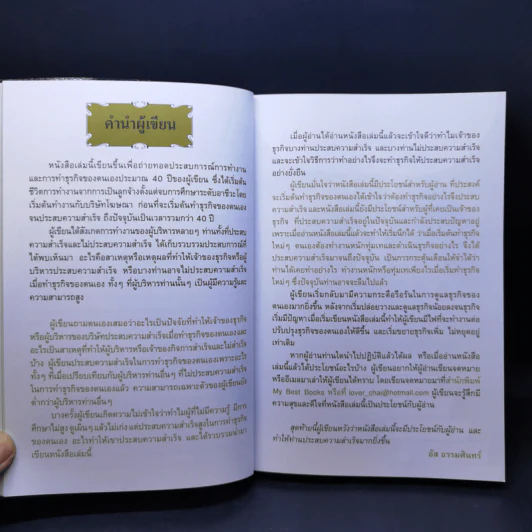 คำนำผู้เขียน
หนังสือเล่มนี้เขียนขึ้นเพื่อถ่ายทอดประสบการณ์การทำงาน
และการทำธุรกิจของตนเองประมาณ 40 ปีของผู้เขียน ซึ่งได้เริ่มต้น
ชีวิตการทำงานจากการเป็นลูกจ้างตั้งแต่จบการศึกษาระดับอาชีวะโดย
เริ่มต้นทำงานกับบริษัทโฆษณา ก่อนที่จะเริ่มต้นทำธุรกิจของตนเอง
จนประสบความสำเร็จ ถึงปัจจุบันเป็นเวลารวมกว่า 40 ปี
ผู้เขียนได้สังเกตการทำงานของผู้บริหารหลายๆ ท่านทั้งที่ประสบ
ความสำเร็จและไม่ประสบความสำเร็จ ได้เก็บรวบรวมประสบการณ์ที่
ได้พบเห็นมา อะไรคือสาเหตุหรือเหตุผลที่ทำให้เจ้าของธุรกิจหรือผู้
บริหารประสบความสำเร็จ หรือบางท่านอาจไม่ประสบความสำเร็จ
เมื่อทำธุรกิจของตนเอง ทั้งๆ ที่ผู้บริหารท่านนั้นๆ เป็นผู้มีความรู้และ
ความสามารถสูง
ผู้เขียนถามตนเองเสมอว่าอะไรเป็นปัจจัยที่ทำให้เจ้าของธุรกิจ
หรือผู้บริหารของบริษัทประสบความสำเร็จเมื่อทำธุรกิจของตนเองและ
อะไรเป็นสาเหตุที่ทำให้ผู้บริหารหรือเจ้าของกิจการล้มเหลวและไม่สำเร็จ
ดังนั้น ผู้เขียนประสบความสำเร็จในการทำธุรกิจของตนเองเพราะอะไร
ทั้งๆ ที่เมื่อเปรียบเทียบกับผู้บริหารท่านอื่นๆ ที่ไม่ประสบความสำเร็จ
ในการทำธุรกิจของตนเองแล้ว ความสามารถเฉพาะตัวของผู้เขียนยัง
ต่ำกว่าผู้บริหารท่านอื่นๆ
บางครั้งผู้เขียนเกิดความไม่เข้าใจว่าทำไมผู้ที่ไม่มีความรู้ มีการ
ศึกษาไม่สูง ดูเผินๆ แล้วไม่เก่ง แต่ประสบความสำเร็จสูงในการทำธุรกิจ
ของตนเอง อะไรทำให้เขาประสบความสำเร็จ และได้รวบรวมนำมา
เขียนหนังสือเล่มนี้
เมื่อผู้อ่านได้อ่านหนังสือเล่มนี้แล้วจะเข้าใจดีว่าทำไมเจ้าของ
ธุรกิจบางท่านประสบความสำเร็จ และบางท่านไม่ประสบความสำเร็จ
และจะเข้าใจวิธีการว่าทำอย่างไรจึงจะทำธุรกิจให้ประสบความสำเร็จ
อย่างยั่งยืน
ผู้เขียนมั่นใจว่าหนังสือเล่มนี้มีประโยชน์สำหรับผู้อ่าน ที่ประสงค์
จะเริ่มต้นทำธุรกิจของตนเองให้เข้าใจว่าต้องทำอย่างไรจึงจะประสบ
ความสำเร็จ และหนังสือเล่มนี้ยังมีประโยชน์สำหรับผู้ที่เคยเป็นเจ้าของ
ธุรกิจที่ประสบความสำเร็จอยู่ในปัจจุบันและกำลังประสบปัญหาอยู่
เพราะเมื่ออ่านหนังสือเล่มนี้แล้วจะทำให้เริ่มนึกได้ ว่าเมื่อเริ่มต้นทำธุรกิจ
ใหม่ๆ ตนเองต้องทำงานหนักทุ่มเทและดำเนินธุรกิจอย่างไร จึงได้
ประสบความสำเร็จมาจนถึงปัจจุบัน เป็นการกระตุ้นเตือนให้จำได้ว่า
ท่านได้เคยทำอย่างไร ทำงานหนักหรือทุ่มเทเพียงไรเมื่อเริ่มทำธุรกิจ
ใหม่ๆ ซึ่งปัจจุบันท่านอาจจะลืมไปแล้ว
ผู้เขียนเริ่มกลับมามีความกระตือรือร้นในการดูแลธุรกิจของ
ตนเองมากยิ่งขึ้น หลังจากเริ่มปล่อยวางและดูแลธุรกิจน้อยลงจนธุรกิจ
เริ่มมีปัญหาเมื่อเริ่มเขียนหนังสือเล่มนี้ ทำให้ผู้เขียนมีไฟที่จะทำงานต่อ
ปรับปรุงธุรกิจของตนเองให้ดีขึ้น และเริ่มขยายธุรกิจเพิ่ม ไม่หยุดอยู่
เท่าเดิม
หากผู้อ่านท่านใดนำไปปฏิบัติแล้วได้ผล หรือเมื่ออ่านหนังสือ
เล่มนี้แล้วได้ประโยชน์อะไรบ้าง ผู้เขียนอยากให้ผู้อ่านเขียนจดหมาย
หรืออีเมลมาเล่าให้ผู้เขียนได้ทราบ โดยเขียนจดหมายมาที่สำนักพิมพ์
My Best Books หรือที่ lover_chas@hotmail.com ผู้เขียนจะรู้สึกมี
ความสุขและดีใจที่หนังสือเล่มนี้เป็นประโยชน์กับผู้อ่าน
สุดท้ายนี้ผู้เขียนหวังว่าหนังสือเล่มนี้จะมีประโยชน์กับผู้อ่าน และ
ทำให้ท่านประสบความสำเร็จมากยิ่งขึ้น
ธรรมศินทร์